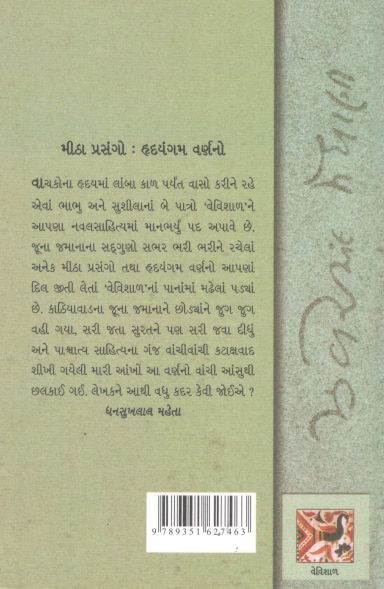 મીઠા પ્રસંગો : હૃદયંગમ વર્ણનો
વાચકોના હૃદયમાં લાંબા કાળ પર્યંત વાસો કરીને રહે
એવાં ભાભુ અને સુશીલાનાં બે પાત્રો 'વેવિશાળ'ને
આપણા નવલસાહિત્યમાં માનભર્યું પદ અપાવે છે.
જૂના જમાનાના સદ્ગુણો સભર ભરી ભરીને રચેલાં
અનેક મીઠા પ્રસંગો તથા હૃદયંગમ વર્ણનો આપણાં
દિલ જીતી લેતાં 'વેવિશાળ'નાં પાનાંમાં મઢેલાં પડ્યાં
છે. કાઠિયાવાડના જૂના જમાનાને છોડ્યાંને જુગ જુગ
વહી ગયા, સરી જતા સુરતને પણ સરી જવા દીધું
અને પાશ્ચાત્ય સાહિત્યના ગંજ વાંચીવાંચી કટાક્ષવાદ
શીખી ગયેલી મારી આંખો આ વર્ણનો વાંચી આંસુથી
છલકાઈ ગઈ. લેખકને આથી વધુ કદર કેવી જોઈએ ?
ધનસુખલાલ મહેતા
ઝવેરચંદ મેઘાણી
9 789351 627463
વેવિશાળ